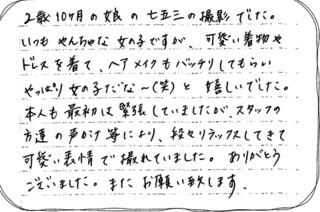 2歳10ヶ月の娘の七五三の撮影でした。
いつもやんちゃな女の子ですが、可愛い着物や
ドレスを着て、ヘアメイクもバッチリしてもらい
やっぱり女の子だな〜(笑)と嬉しいでした。
本人も最初は緊張していましたが、スタッフの
方達の声かけ等により、段々リラックスしてきて
可愛い表情で撮れていました。ありがとう
ございました。またお願い致します。